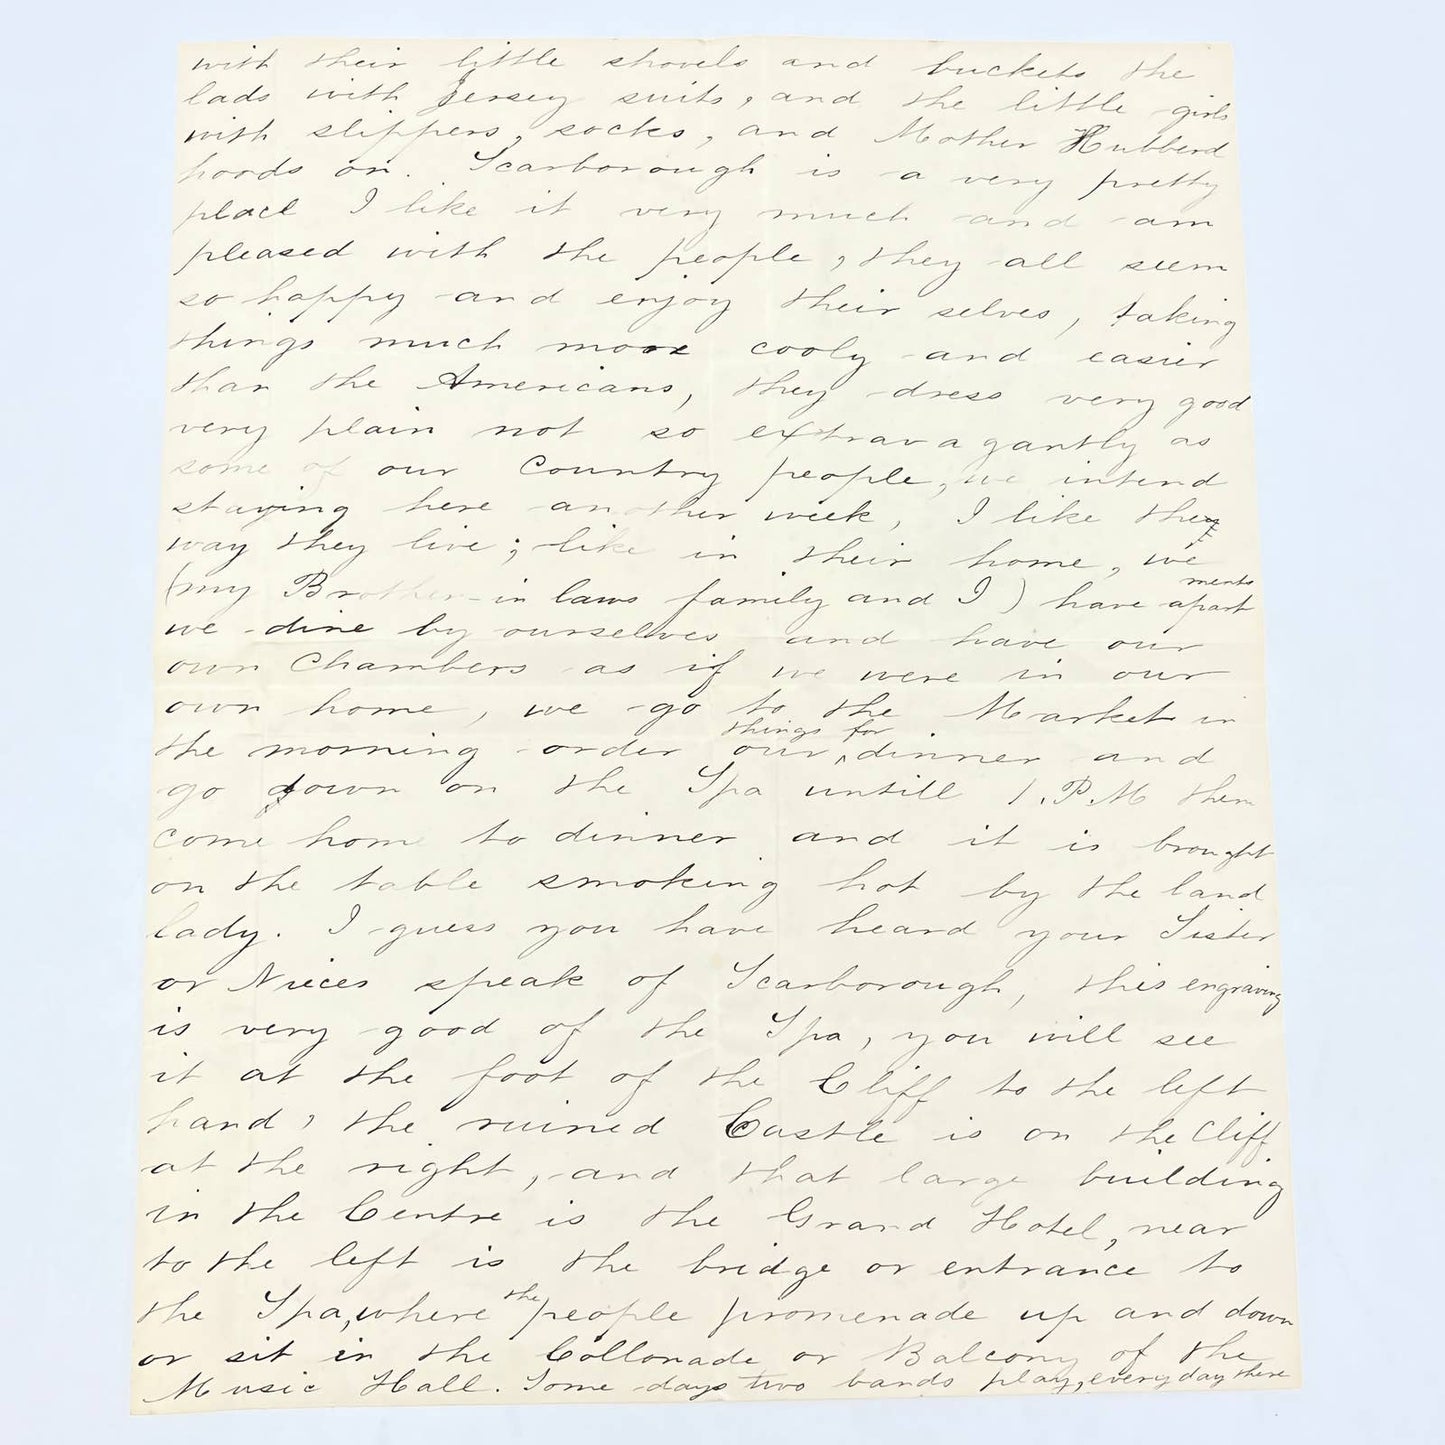 with their little shovels and buckets the
lads with Jersey suits, and the little girls
with slippers, socks, and Mother Hubberd
hoods on. Scarborough is a very pretty
place I like it very much and am
pleased with the people, they all seem
so happy and enjoy their selves, taking
things much more cooly and easier
than the Americans, they dress very good
very plain not so extravagantly as
some of our Country people, we intend
staying here another week, I like the
way they live; like in their home, we
(my Brother-in laws family and I) have apartments
we dine by ourselves and have our
own Chambers as if we were in our
own home, we go to the Market in
the morning order our things for dinner and
go down on the Spa untill 1.P.M then
come home to dinner and it is brought
on the table smoking hot by the land
lady. I guess you have heard your Sister
or Nieces speak of Scarborough, this engraving
is very good of the Spa, you will see
it at the foot of the Cliff to the left
hand, the ruined Castle is on the Cliff
at the right, and that large building
in the Centre is the Grand Hotel, near
to the left is the bridge or entrance to
the Spa, where the people promenade up and down
or sit in the Collonade or Balcony of the
Music Hall. Some days two bands play, every day there